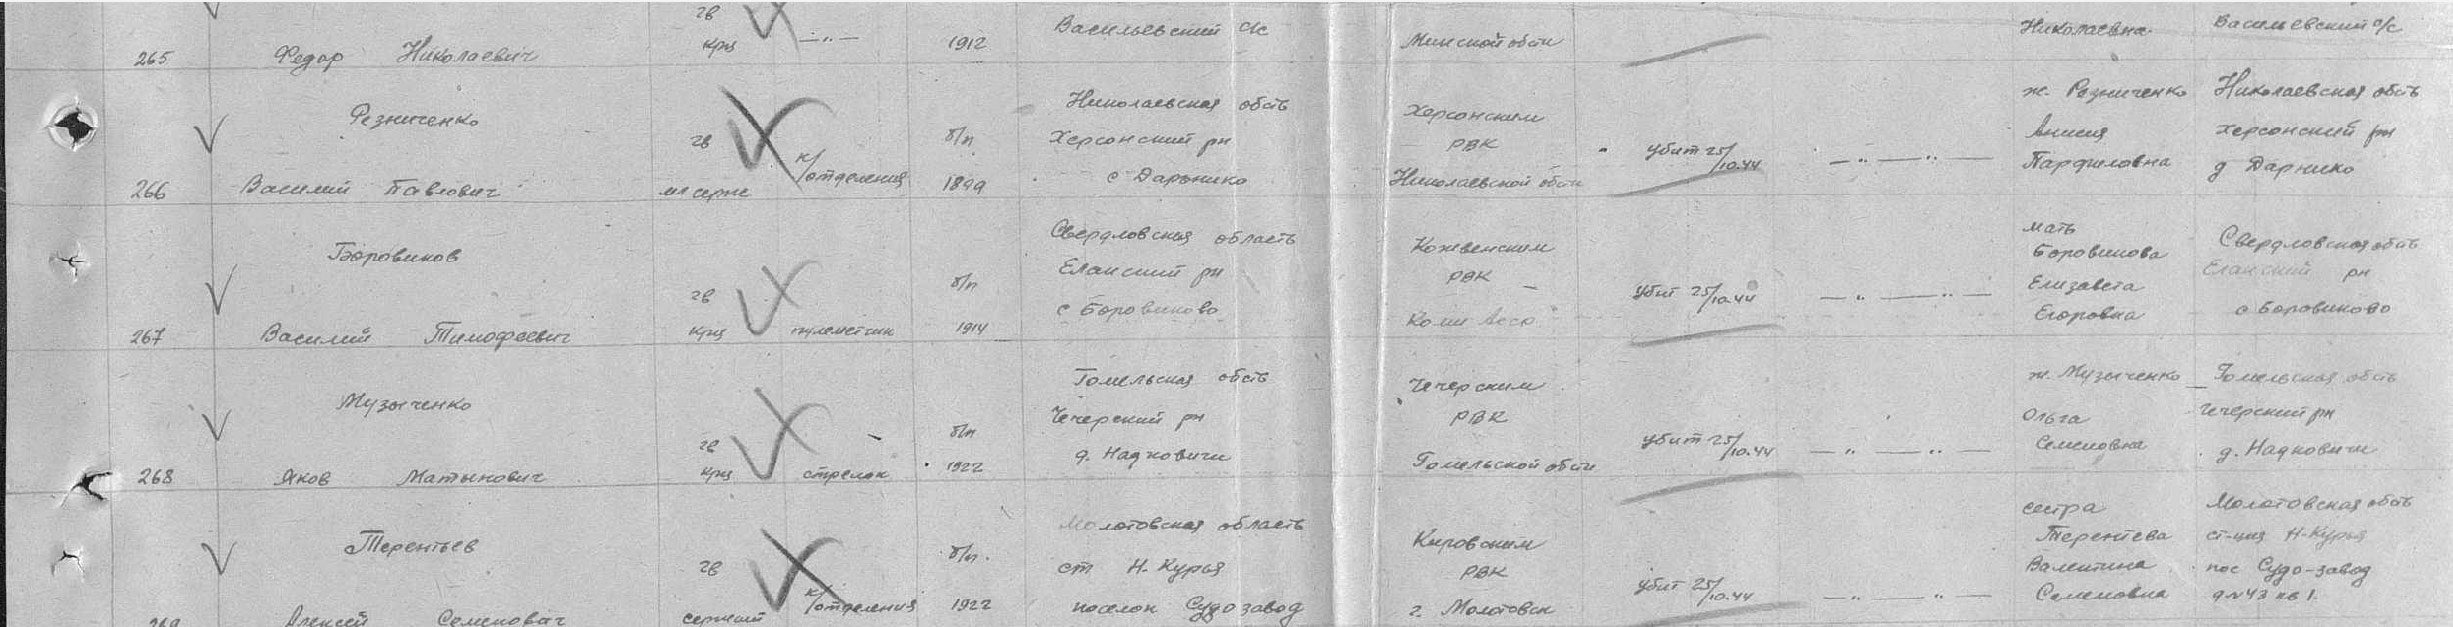 гв Васильевский с/с Николаевна Васильевский с/с
265 Федор Николаевич крц —"— 1912 Минской обл
Резниченко Николаевская обсть Херсонским ж. Резниченко Николаевская обсть
гв б/п Херсонский рн РВК убит 25/10.44 —"—"— Анисия Херсонский рн
266 Василий Павлович мл серж к/отделения 1899 с Дарьнико Николаевской обл Парфиловна д Дарнико
Боровиков Свердловская область Кожвенским мать Боровикова Свердловская обсть
гв б/п Еланский рн РВК убит 25/10.44 —"—"— Елизавета Еланский рн
267 Василий Тимофеевич крц пулеметчик 1914 с Боровиково Коми Асср Егоровна с Боровиково
Музыченко Гомельская обсть Чечерским ж. Музыченко Гомельская обсть
гв б/п Чечерский рн РВК убит 25/10.44 —"—"— Ольга Чечерский рн
268 Яков Мартынович крц стрелок 1922 д. Надковичи Гомельской обл Семеновна д. Надковичи
Терентьев Молотовская область Кировским сестра Молотовская обсть
гв б/п. ст Н-Курья РВК Терентева ст-ция Н-Курья
убит 25/10.44 —"—"— Валентина пос Судо-завод
269 Алексей Семенович сержант к/отделения 1922 поселок Судозавод г. Молотовск Семеновна д№43 кв 1.